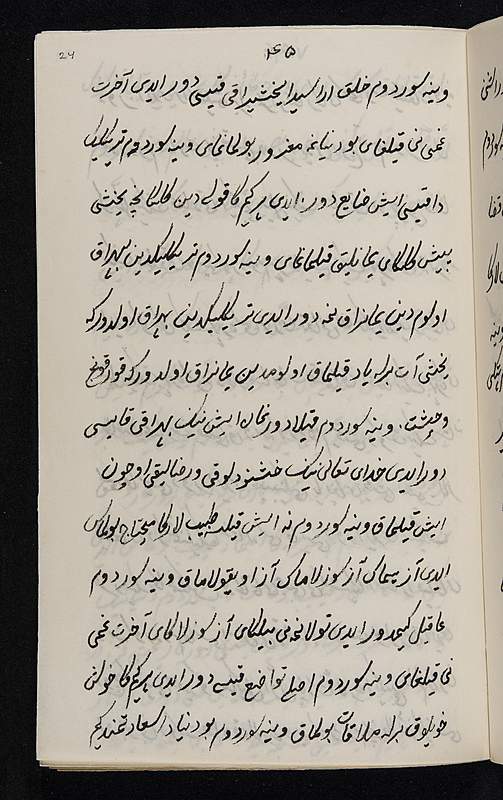 24
۴۵
وینه سوردوم خلق اراسیدا یخشیراقی قیسی دور ایدی آخرت
غمی نی قیلغای بو دنیاغه مغرور بولماغای وینه سوردوم تریکلیک
دا قیسی ایش ضایع دور ایدی هر کیم کا قولی دین کلکانچه یخشی
ایش کلکای یمانلیق قیلماغای وینه سوردوم تریکلیکدین بهراق
اولوم دین یمانراق نمه دور ایدی تریکلیکدین بهراق اولدورکه
یخشی آت برله یاد قیلماق اولومدین یمانراق اولدورکه قورقونج
وحشت. وینه سوردوم قیلادورغان ایش نینک بهراقی قایسی
دور ایدی خدای تعالی نینک خشنودلوقی و رضالیقی اوچون
ایش قیلماق وینه سوردوم نه ایش قیلسه طبیب لارکا محتاج بولماس
ایدی آز یماک آز سوزلاماک آز اویقولاماق وینه سوردوم
عاقیل کیمدور ایدی تولا نمه نی بیلکای آز سوزلاکای آخرت غمی
نی قیلغای وینه سوردوم اصل تواضع قیسی دور ایدی هر کیم کا خوش
خویلوق برله ملاقات بولماق وینه سوردوم بو دنیادا سعادتمند کیم